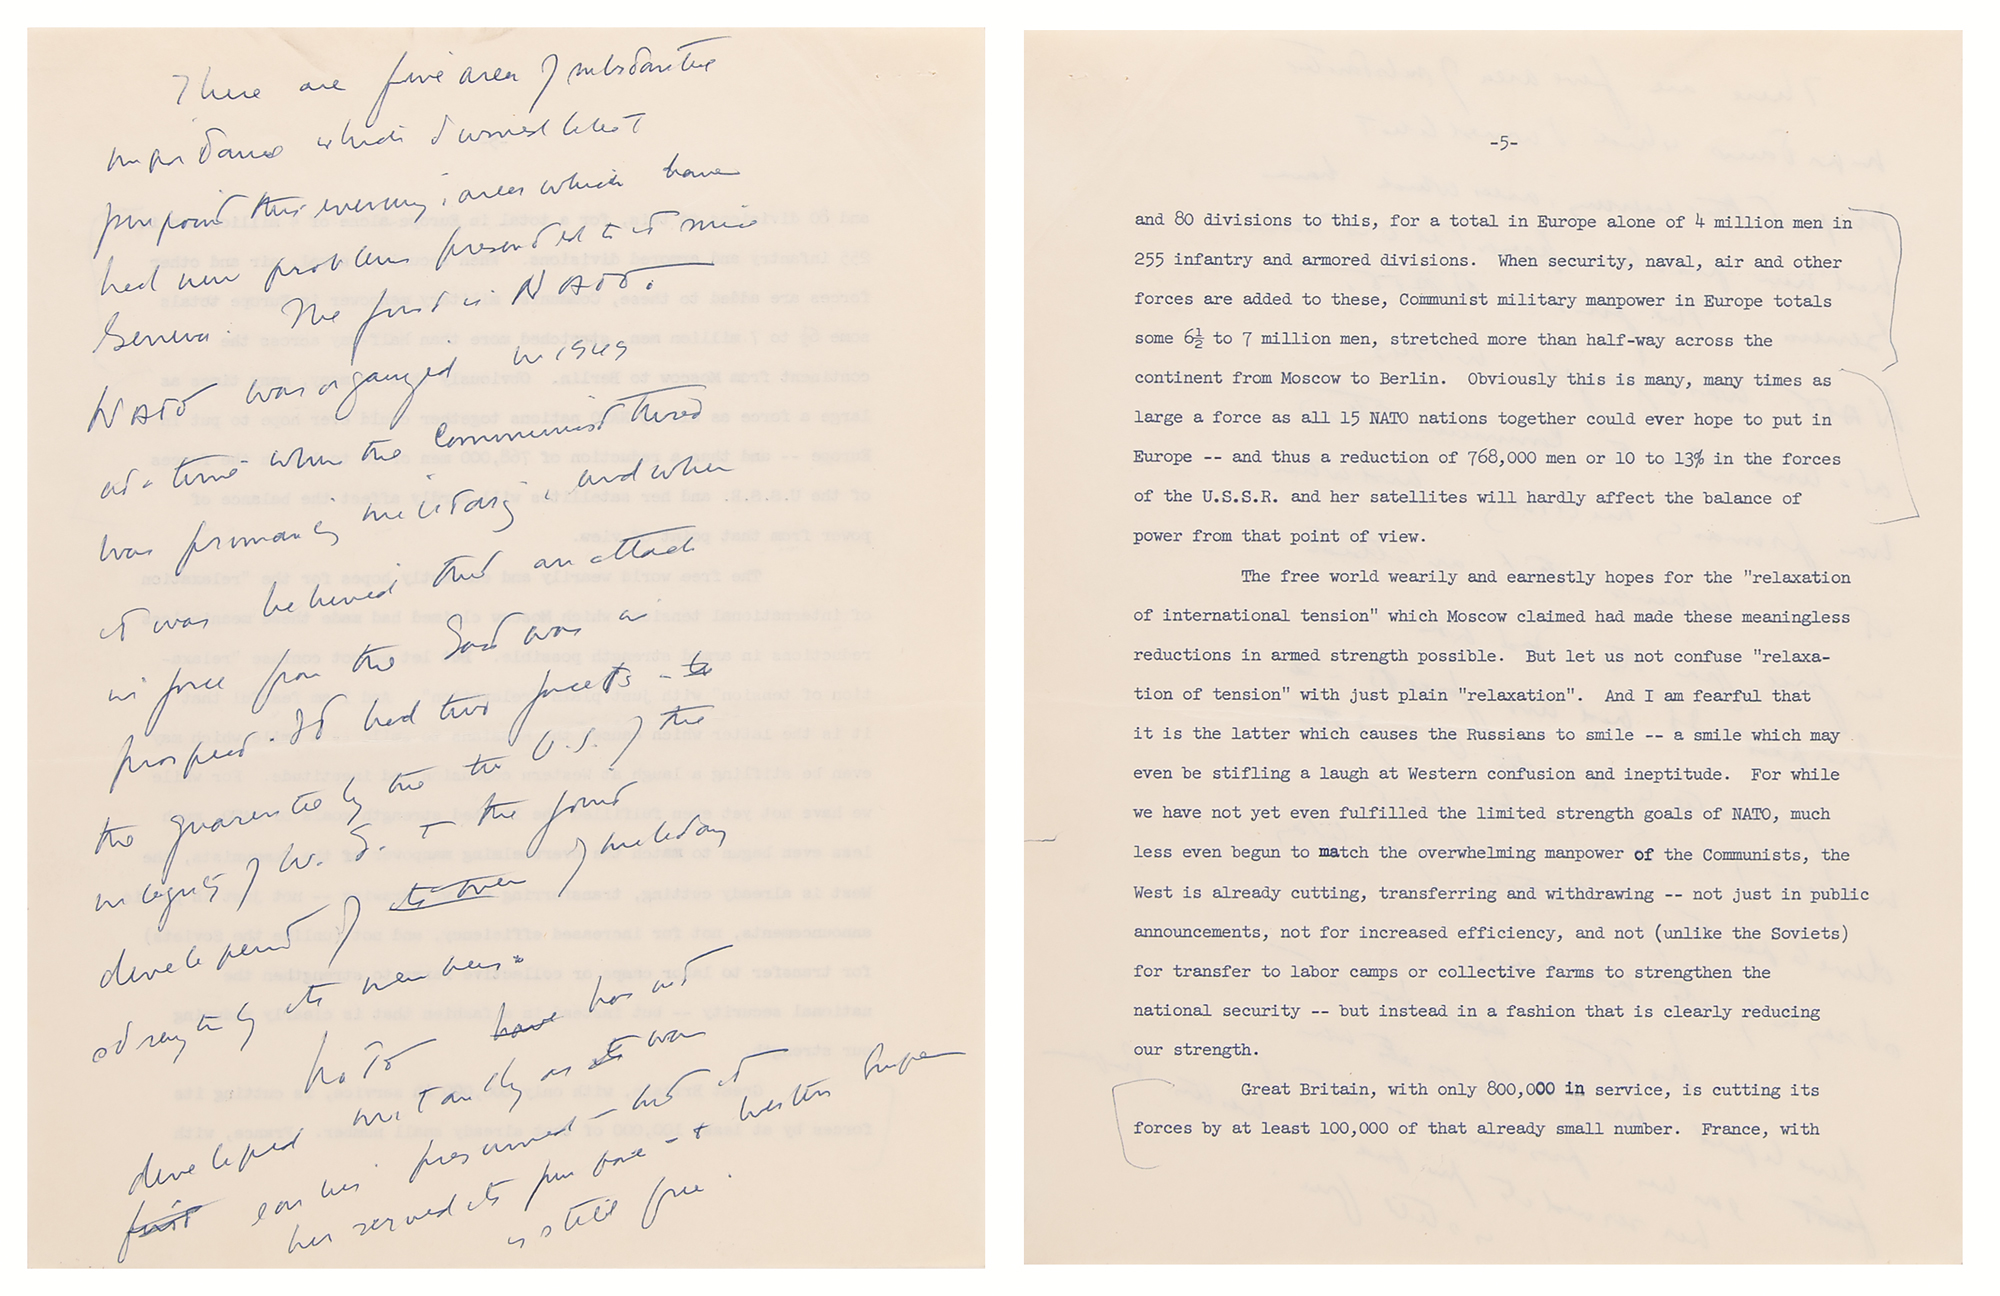 There are five area of substantive
importance which I would like to
pin point this evening; areas which have
had new problems presented to it since
Geneva. The first is NATO.
NATO was organized in 1949
at a time when the Communist threat
was primarily military and when
it was believed that an attack
in force from the East was in
prospect. It had two facets - to
the guarantee by the the U.S. of the
integrity of W. E. + the joint
development of its own of military
strength by its members.
NATO have has not
developed militarily as it was
first earlier presumed - but it
has served its purpose - + Western Europe
is still free.
-5-
and 80 divisions to this, for a total in Europe alone of 4 million men in
255 infantry and armored divisions. When security, naval, air and other
forces are added to these, Communist military manpower in Europe totals
some 6½ to 7 million men, stretched more than half-way across the
continent from Moscow to Berlin. Obviously this is many, many times as
large a force as all 15 NATO nations together could ever hope to put in
Europe -- and thus a reduction of 768,000 men or 10 to 13% in the forces
of the U.S.S.R. and her satellites will hardly affect the balance of
power from that point of view.
The free world wearily and earnestly hopes for the "relaxation
of international tension" which Moscow claimed had made these meaningless
reductions in armed strength possible. But let us not confuse "relaxa-
tion of tension" with just plain "relaxation". And I am fearful that
it is the latter which causes the Russians to smile -- a smile which may
even be stifling a laugh at Western confusion and ineptitude. For while
we have not yet even fulfilled the limited strength goals of NATO, much
less even begun to match the overwhelming manpower of the Communists, the
West is already cutting, transferring and withdrawing -- not just in public
announcements, not for increased efficiency, and not (unlike the Soviets)
for transfer to labor camps or collective farms to strengthen the
national security -- but instead in a fashion that is clearly reducing
our strength.
Great Britain, with only 800,000 in service, is cutting its
forces by at least 100,000 of that already small number. France, with